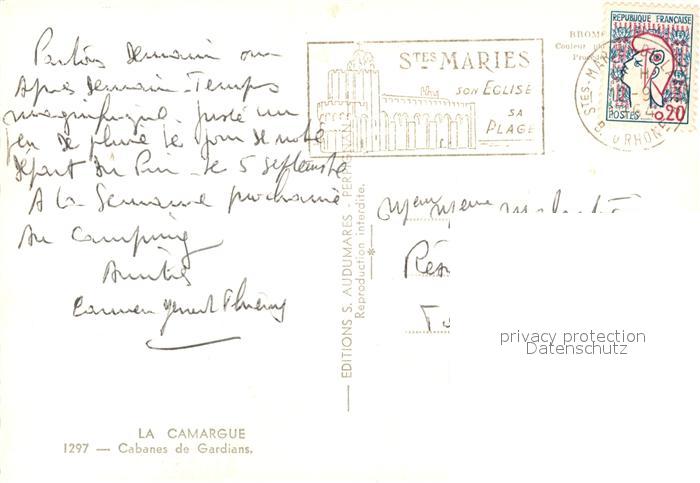 Partons demain ou
Après demain. Temps
magnifique. juste un
peu de pluie le jour de notre
départ du Pin le 5 septembre
A la Semaine prochaine
Au Camping
Amitiés
Carmen
STES MARIES
SON EGLISE
SA
PLAGE
REPUBLIQUE FRANÇAISE
POSTES 0,20
STES MAR
B. DU RHONE
EDITIONS S. AUDUMARES - PERPIGNAN
Reproduction interdite.
Rés
privacy protection
Datenschutz
LA CAMARGUE
1297 — Cabanes de Gardians.